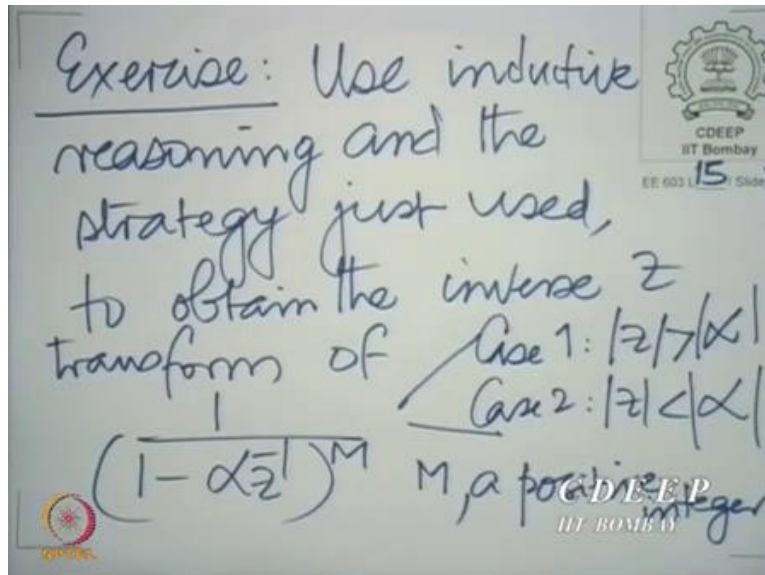 Exercise: Use inductive
reasoning and the
strategy just used,
to obtain the inverse Z
transform of
Case 1: |z|>|α|
Case 2: |z|<|α|
1
(1 - αz⁻¹)ᴹ M, a positive
integer
CDEEP
IIT Bombay
EE 603 L 15 / Slide
CDEEP
IIT BOMBAY
NPTEL